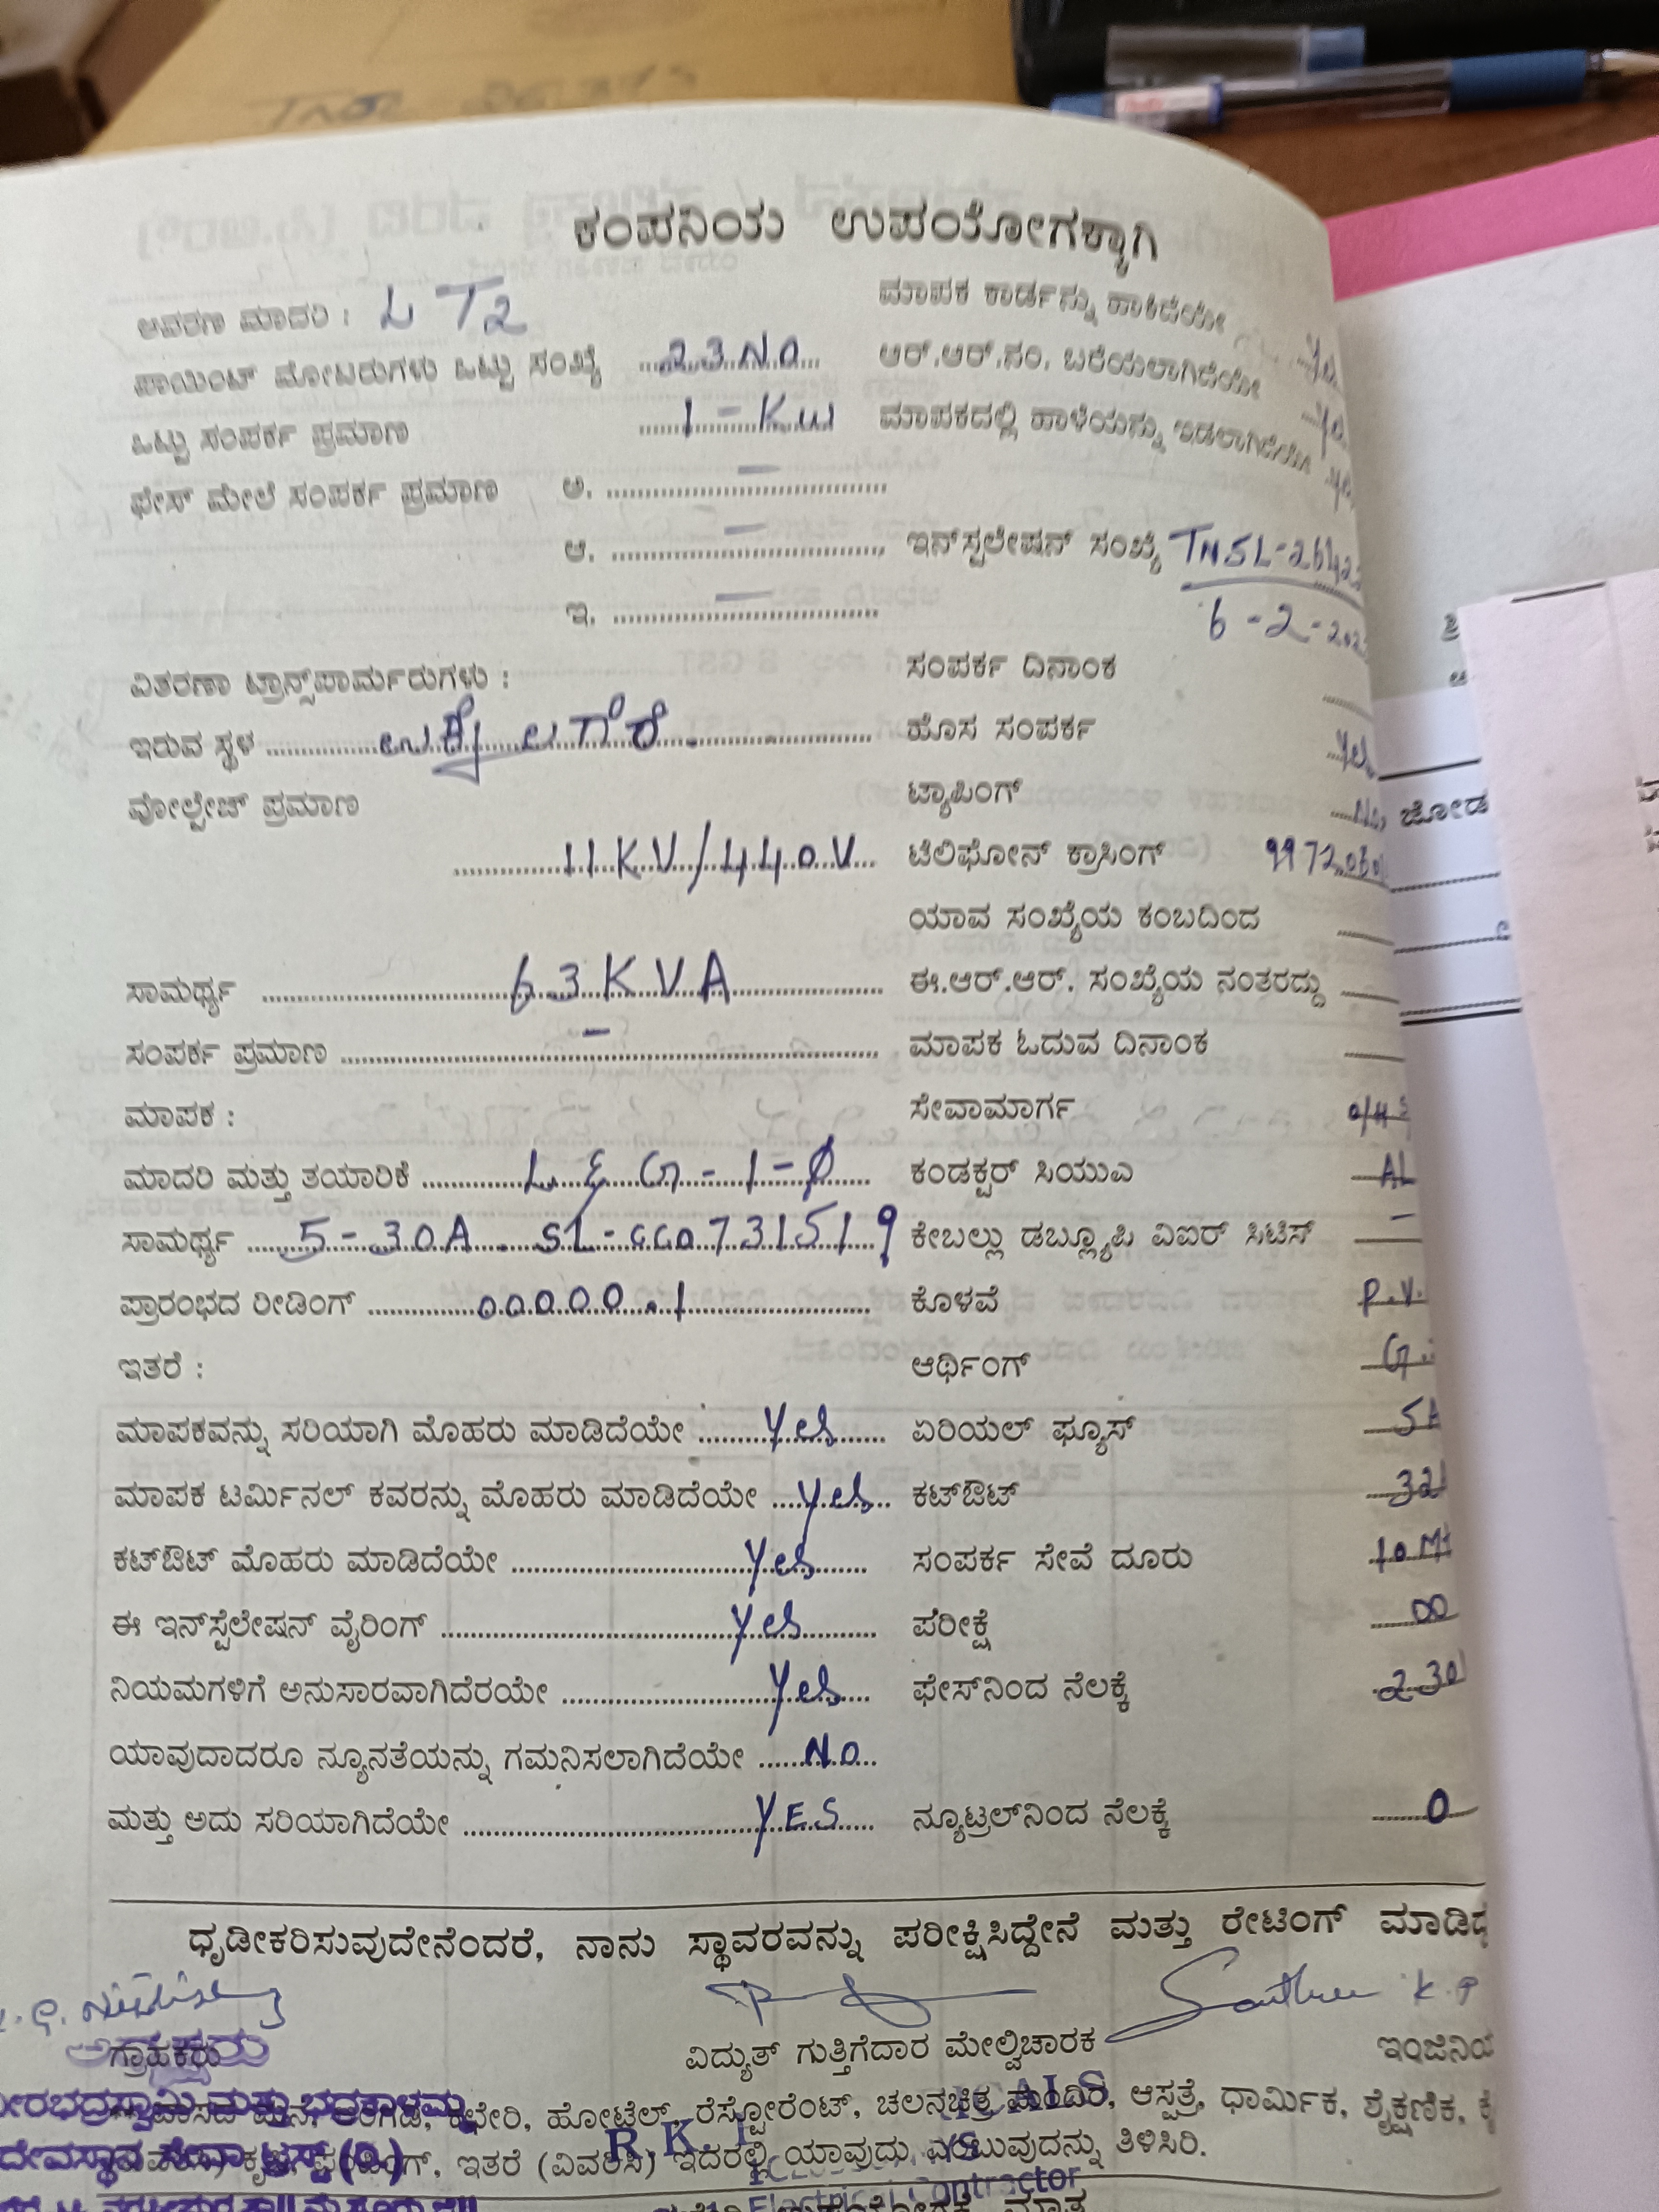 ಕಂಪನಿಯ ಉಪಯೋಗಕ್ಕಾಗಿ
ಆವರಣ ಮಾದರಿ : LT2
ಮಾಪಕ ಕಾರ್ಡನ್ನು ಹಾಕಿದೆಯೇ
ಪಾಯಿಂಟ್ ಮೋಟರುಗಳು ಒಟ್ಟು ಸಂಖ್ಯೆ 23 No
ಆರ್.ಆರ್.ನಂ. ಬರೆಯಲಾಗಿದೆಯೇ
ಒಟ್ಟು ಸಂಪರ್ಕ ಪ್ರಮಾಣ 1 - Kw
ಮಾಪಕದಲ್ಲಿ ಹಾಳೆಯನ್ನು ಇಡಲಾಗಿದೆಯೇ
ಫೇಸ್ ಮೇಲೆ ಸಂಪರ್ಕ ಪ್ರಮಾಣ ಅ. –
ಆ. – ಇನ್‌ಸ್ಟಲೇಷನ್ ಸಂಖ್ಯೆ
ಇ. – 6 - 2 -
ವಿತರಣಾ ಟ್ರಾನ್ಸ್‌ಪಾರ್ಮರುಗಳು : ಸಂಪರ್ಕ ದಿನಾಂಕ
ಇರುವ ಸ್ಥಳ
ಹೊಸ ಸಂಪರ್ಕ Yes
ವೋಲ್ಟೇಜ್ ಪ್ರಮಾಣ 11KV/440V
ಟ್ಯಾಪಿಂಗ್ No
ಜೋಡ
ಟೆಲಿಫೋನ್ ಕ್ರಾಸಿಂಗ್
ಯಾವ ಸಂಖ್ಯೆಯ ಕಂಬದಿಂದ
ಸಾಮರ್ಥ್ಯ 63KVA ಈ.ಆರ್.ಆರ್. ಸಂಖ್ಯೆಯ ನಂತರದ್ದು
ಸಂಪರ್ಕ ಪ್ರಮಾಣ – ಮಾಪಕ ಓದುವ ದಿನಾಂಕ
ಮಾಪಕ : ಸೇವಾಮಾರ್ಗ O/H
ಮಾದರಿ ಮತ್ತು ತಯಾರಿಕೆ L & G - 1 - Ø ಕಂಡಕ್ಟರ್ ಸಿಯುಎ AL
ಸಾಮರ್ಥ್ಯ 5 - 30A ಕೇಬಲ್ಲು ಡಬ್ಲ್ಯೂಪಿ ವಿಐರ್ ಸಿಟಿಸ್ –
ಪ್ರಾರಂಭದ ರೀಡಿಂಗ್ 00000.1 ಕೊಳವೆ P.V.
ಇತರೆ : ಆರ್ಥಿಂಗ್ G.
ಮಾಪಕವನ್ನು ಸರಿಯಾಗಿ ಮೊಹರು ಮಾಡಿದೆಯೇ Yes ಏರಿಯಲ್ ಫ್ಯೂಸ್ 5A
ಮಾಪಕ ಟರ್ಮಿನಲ್ ಕವರನ್ನು ಮೊಹರು ಮಾಡಿದೆಯೇ Yes ಕಟ್‌ಔಟ್ 32
ಕಟ್‌ಔಟ್ ಮೊಹರು ಮಾಡಿದೆಯೇ Yes ಸಂಪರ್ಕ ಸೇವೆ ದೂರು 10 Mt
ಈ ಇನ್‌ಸ್ಪೆಲೇಷನ್ ವೈರಿಂಗ್ Yes ಪರೀಕ್ಷೆ ∞
ನಿಯಮಗಳಿಗೆ ಅನುಸಾರವಾಗಿದೆರಯೇ Yes ಫೇಸ್‌ನಿಂದ ನೆಲಕ್ಕೆ 230
ಯಾವುದಾದರೂ ನ್ಯೂನತೆಯನ್ನು ಗಮನಿಸಲಾಗಿದೆಯೇ No
ಮತ್ತು ಅದು ಸರಿಯಾಗಿದೆಯೇ YES ನ್ಯೂಟ್ರಲ್‌ನಿಂದ ನೆಲಕ್ಕೆ 0
ಧೃಡೀಕರಿಸುವುದೇನೆಂದರೆ, ನಾನು ಸ್ಥಾವರವನ್ನು ಪರೀಕ್ಷಿಸಿದ್ದೇನೆ ಮತ್ತು ರೇಟಿಂಗ್ ಮಾಡಿದ್ದ
ಗ್ರಾಹಕರು ವಿದ್ಯುತ್ ಗುತ್ತಿಗೆದಾರ ಮೇಲ್ವಿಚಾರಕ ಇಂಜಿನಿಯ
ಹೋಟೆಲ್, ರೆಸ್ಟೋರೆಂಟ್, ಚಲನಚಿತ್ರ ಮಂದಿರ, ಆಸ್ಪತ್ರೆ, ಧಾರ್ಮಿಕ, ಶೈಕ್ಷಣಿಕ,
ಇತರೆ (ವಿವರಿಸಿ) ಇದರಲ್ಲಿ ಯಾವುದು ಎಂಬುವುದನ್ನು ತಿಳಿಸಿರಿ.
ದೇವಸ್ಥಾನ ಸೇವಾ ಟ್ರಸ್ಟ್ (ರಿ)
R.K.
Electrical Contractor